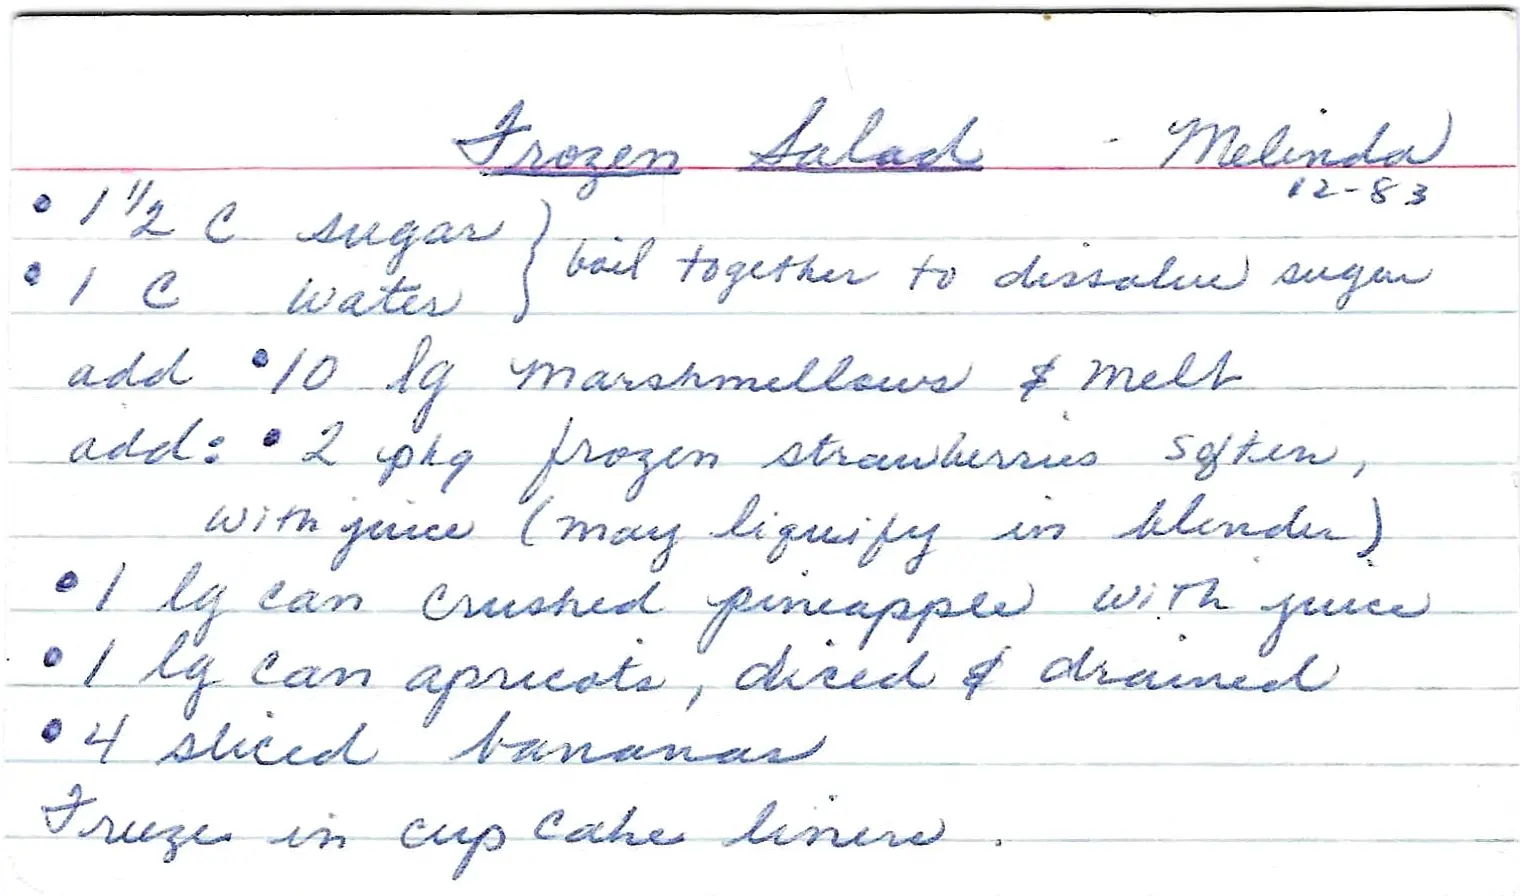 Frozen Salad - Melinda
12-83
• 1 1/2 C sugar } boil together to dissolve sugar
• 1 C water
add • 10 lg marshmellows & melt
add: • 2 pkg frozen strawberries soften,
with juice (may liquify in blender)
• 1 lg can crushed pineapple with juice
• 1 lg can apricots, diced & drained
• 4 sliced bananas
Freeze in cup cake liners.